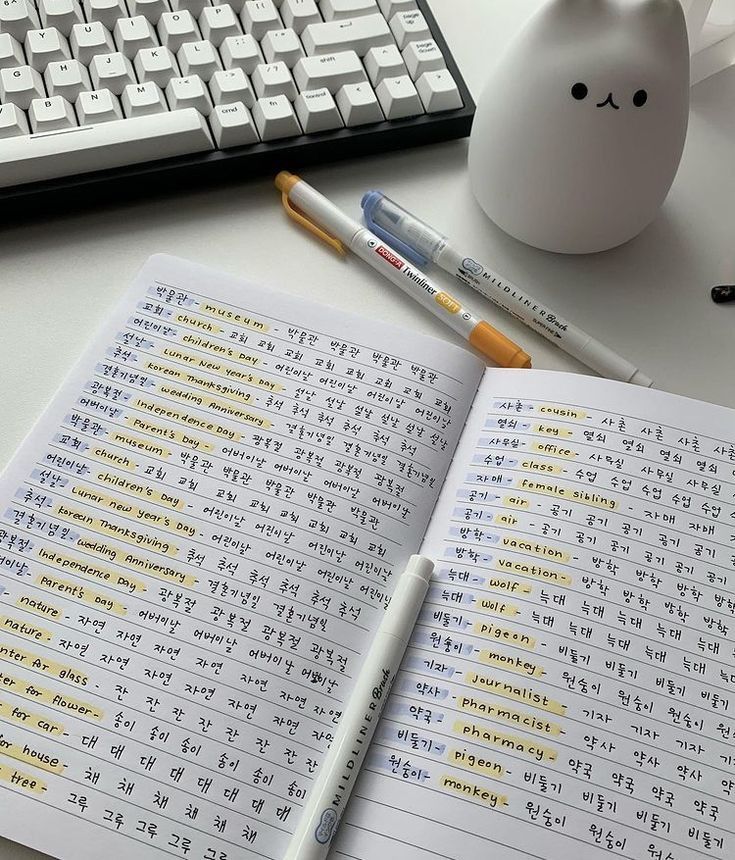 DONG-A Twinliner SOFT
MILDLINER Brush
SUPER FINE
박물관 - museum - 박물관 박물관 박물관 박물관
교회 - church - 교회 교회 교회 교회 교회 교회
어린이날 - children's Day - 어린이날 어린이날 어린이날 어린이날
설날 - Lunar New Year's Day - 설날 설날 설날 설날 설날
추석 - Korean Thanksgiving - 추석 추석 추석 추석 추석
결혼기념일 - Wedding Anniversary - 결혼기념일 결혼기념일 결혼기념일
광복절 - Independence Day - 광복절 광복절 광복절 광복절
어버이날 - Parent's Day - 어버이날 어버이날 어버이날 어버이날
박물관 - museum - 박물관 박물관 박물관 박물관 박물관
교회 - church - 교회 교회 교회 교회 교회 교회 교회
어린이날 - children's Day - 어린이날 어린이날 어린이날 어린이날
설날 - Lunar New Year's Day - 설날 설날 설날 설날 설날 설날
추석 - Korean Thanksgiving - 추석 추석 추석 추석 추석
결혼기념일 - Wedding Anniversary - 결혼기념일 결혼기념일
광복절 - Independence Day - 광복절 광복절 광복절 광복절
어버이날 - Parent's Day - 어버이날 어버이날 어버이날 어버이날
- nature - 자연 자연 자연 자연 자연 자연 자연
nature - 자연 자연 자연 자연 자연 자연 자연
for glass - 잔 잔 잔 잔 잔 잔 잔
for flower - 송이 송이 송이 송이 송이 송이
for car - 대 대 대 대 대 대 대 대
for house - 채 채 채 채 채 채
tree - 그루 그루 그루 그루 그루
사촌 - cousin - 사촌 사촌 사촌 사촌
열쇠 - key - 열쇠 열쇠 열쇠 열쇠 열쇠
사무실 - office - 사무실 사무실 사무실
수업 - class - 수업 수업 수업 수업 수업
자매 - female sibling - 자매 자매
공기 - air - 공기 공기 공기 공기 공기
공기 - air - 공기 공기 공기 공기 공기
방학 - vacation - 방학 방학 방학 방학
방학 - vacation - 방학 방학 방학 방학
늑대 - wolf - 늑대 늑대 늑대 늑대 늑대
늑대 - wolf - 늑대 늑대 늑대 늑대 늑대
비둘기 - pigeon - 비둘기 비둘기 비둘기 비둘기
원숭이 - monkey - 원숭이 원숭이 원숭이 원숭이
기자 - journalist - 기자 기자 기자 기자
약사 - pharmacist - 약사 약사 약사 약사
약국 - pharmacy - 약국 약국 약국 약국
비둘기 - pigeon - 비둘기 비둘기 비둘기 비둘기
원숭이 - monkey - 원숭이 원숭이 원숭이
MILDLINER Brush